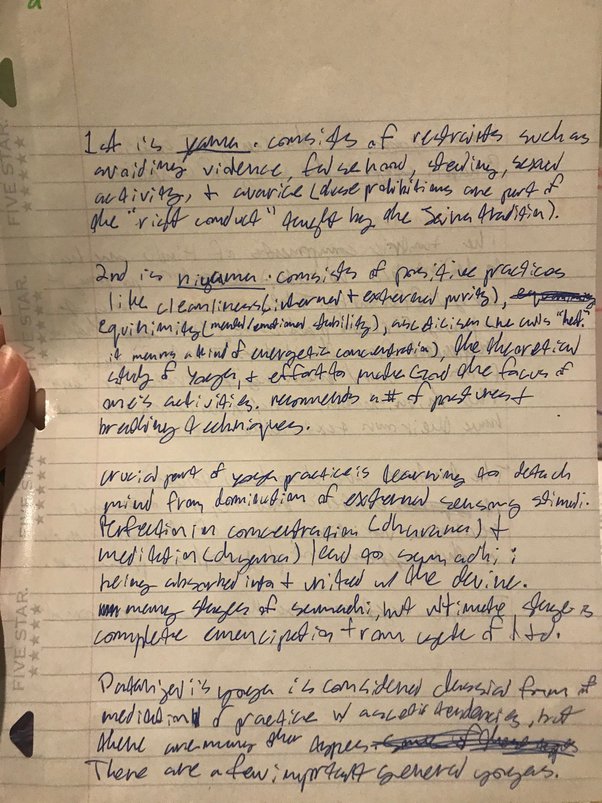 1st is yama. consists of restraints such as
avoiding violence, falsehood, stealing, sexual
activity, + avarice (these prohibitions are part of
the "right conduct" taught by the Jaina tradition).
2nd is niyama. consists of positive practices
like cleanliness (internal + external purity),
equinimity (mental/emotional stability), asceticism (he calls "heat".
it means a kind of energetic concentration), the theoretical
study of yoga, + effort to make God the focus of
one's activities. recommends a # of postures +
breathing techniques.
crucial part of yoga practice is learning to detach
mind from domination of external sensory stimuli.
Perfection in concentration (dharana) +
meditation (dhyana) lead to samadhi:
being absorbed into + united w/ the devine.
many stages of samadhi, but ultimate stage is
complete emancipation from cycle of l + d.
Patanjali's yoga is considered classical from of
meditation of practice w ascetic tendencies, but
there are many other types.
There are a few important general yogas.
FIVE STAR.
FIVE STAR.
FIVE STAR.
FIVE STAR.